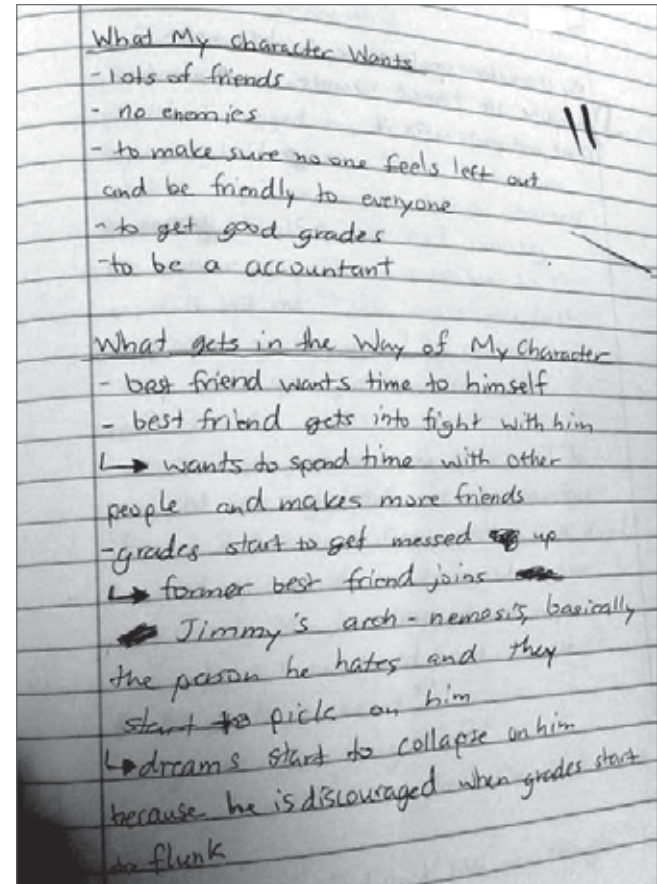 What My Character Wants
- lots of friends
- no enemies
- to make sure no one feels left out
and be friendly to everyone
- to get good grades
- to be a accountant
11
What gets in the Way of My Character
- best friend wants time to himself
- best friend gets into fight with him
↳ wants to spend time with other
people and makes more friends
- grades start to get messed up
↳ former best friend joins
Jimmy's arch-nemesis, basically
the person he hates and they
start to pick on him
↳ dreams start to collapse on him
because he is discouraged when grades start
to flunk